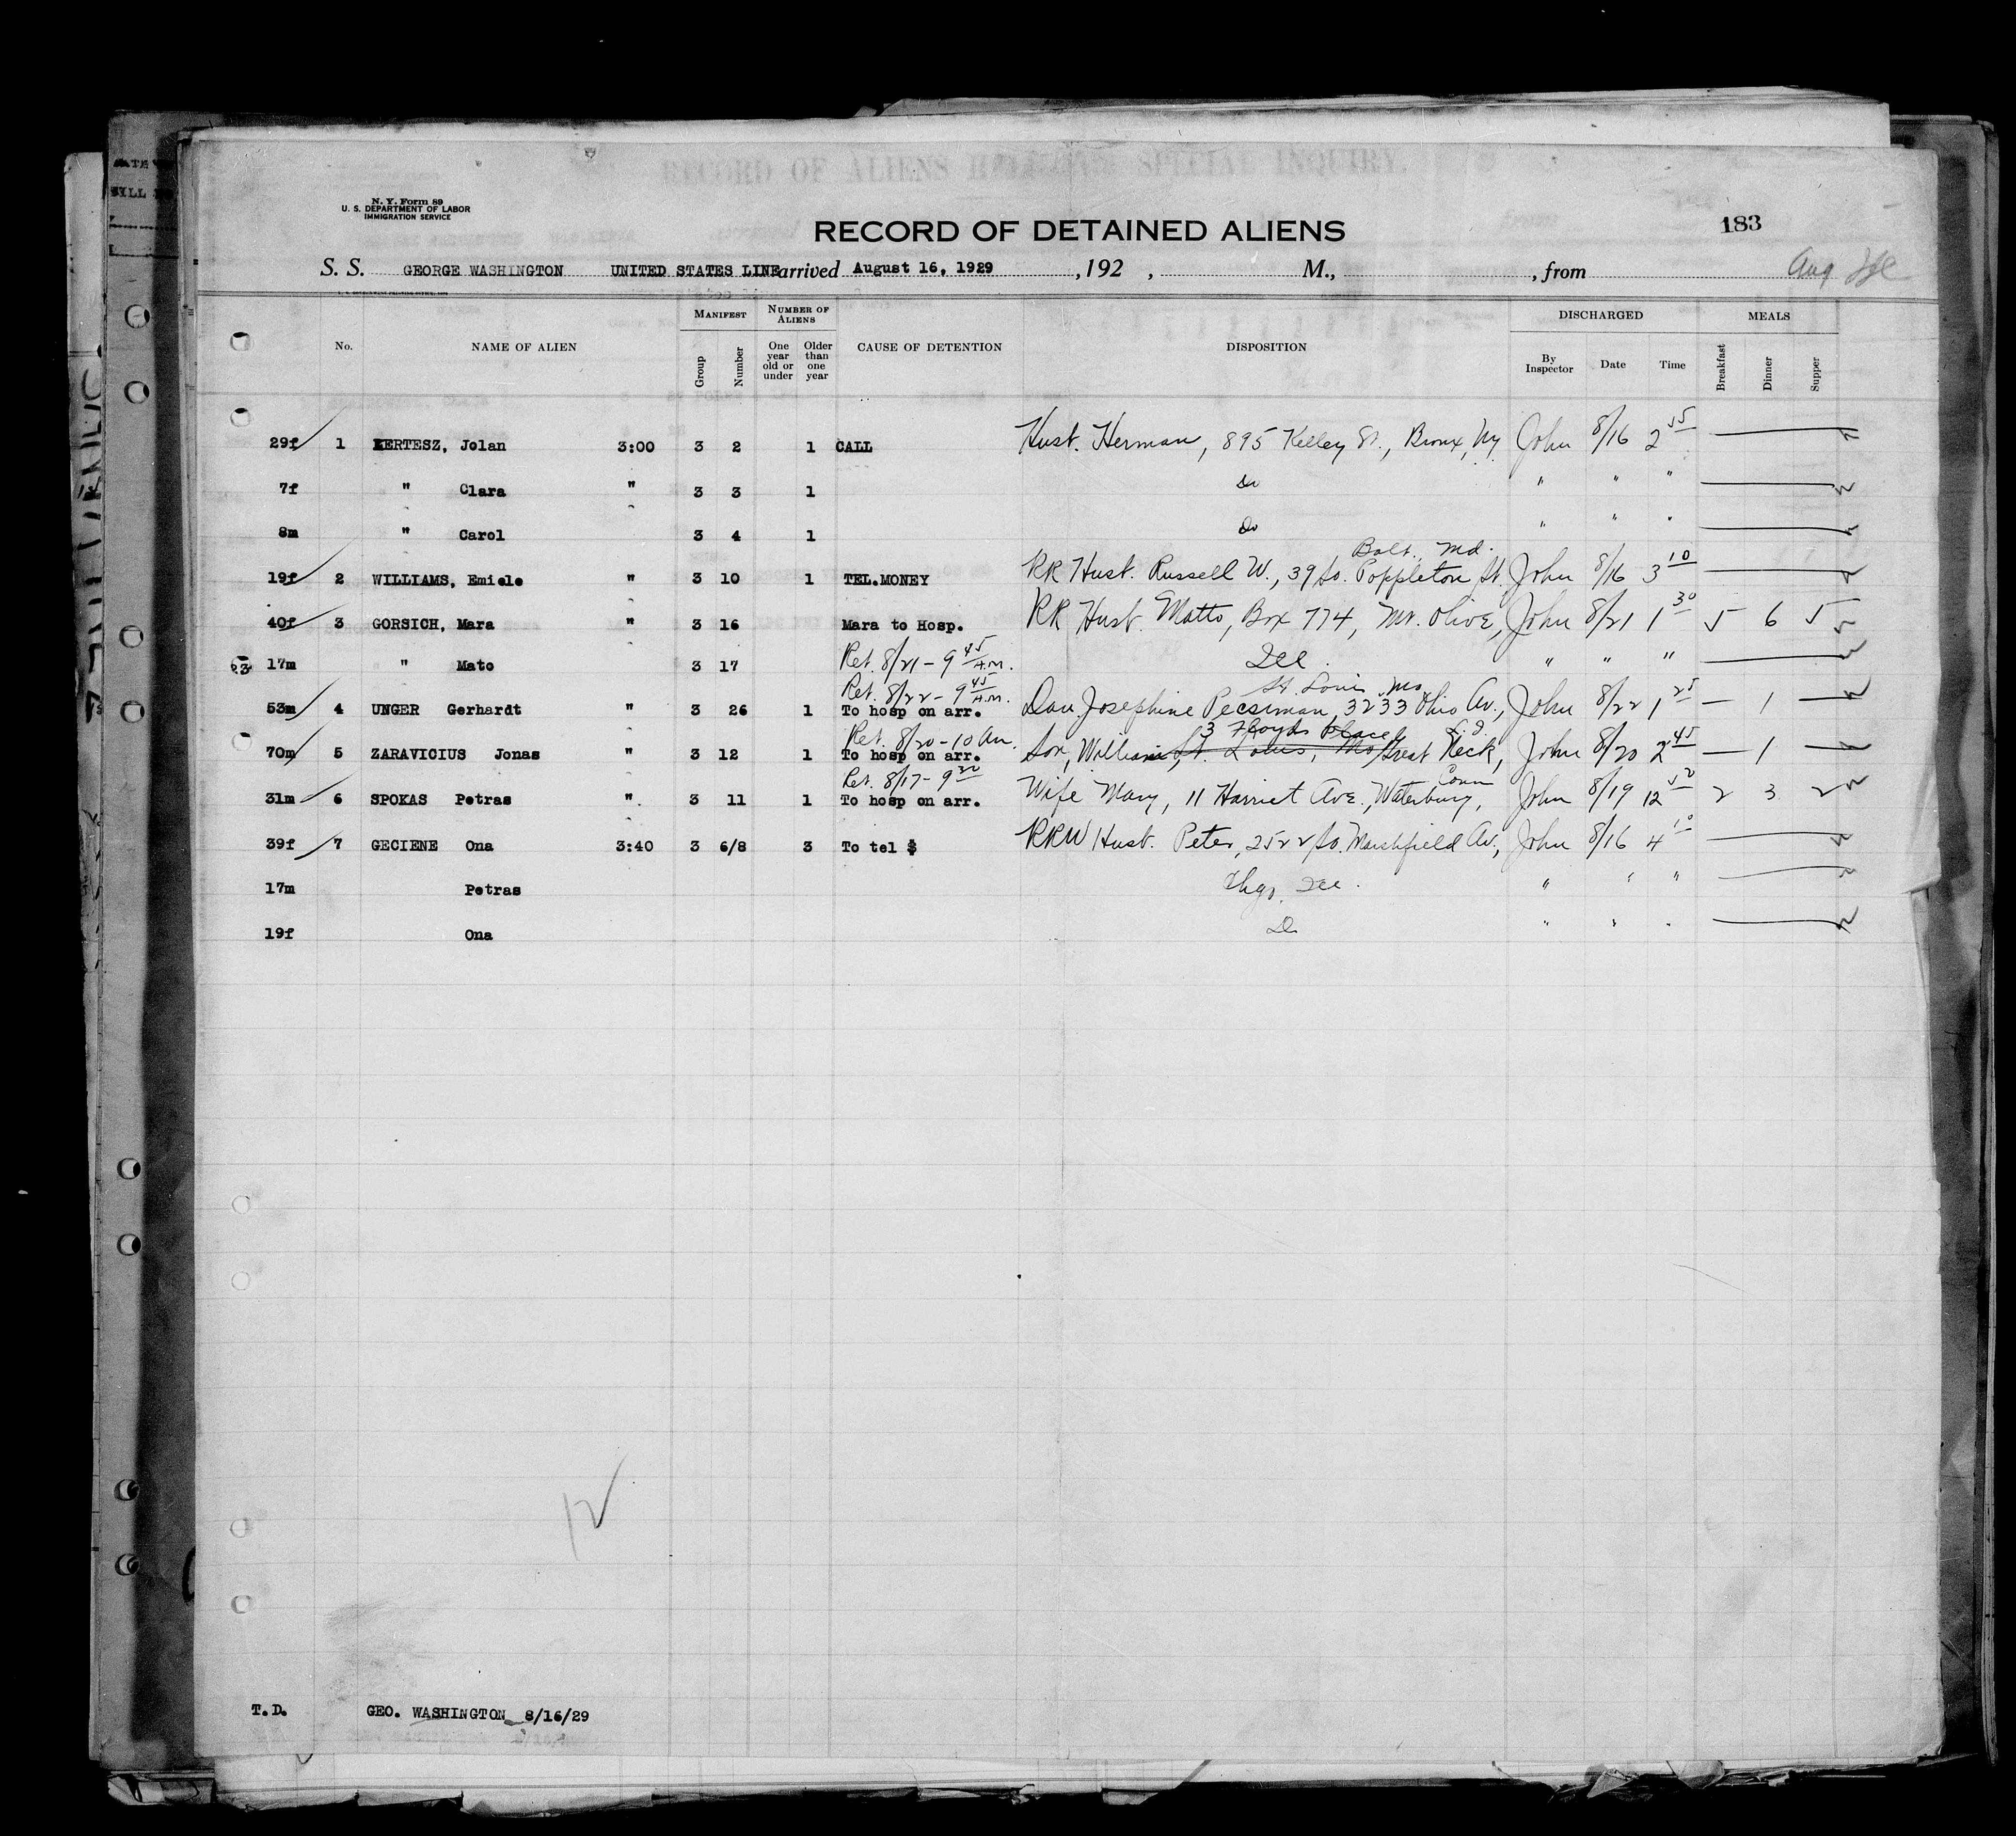 RECORD OF ALIENS HELD FOR SPECIAL INQUIRY.
N. Y. Form 89
U. S. DEPARTMENT OF LABOR
IMMIGRATION SERVICE
RECORD OF DETAINED ALIENS
183
S. S. GEORGE WASHINGTON UNITED STATES LINE arrived August 16, 1929 , 192 , M., , from Aug
No. NAME OF ALIEN MANIFEST Group Number NUMBER OF ALIENS One year old or under Older than one year CAUSE OF DETENTION DISPOSITION DISCHARGED By Inspector Date Time MEALS Breakfast Dinner Supper
29f 1 KERTESZ, Jolan 3:00 3 2 1 CALL Husb. Herman, 895 Kelley St., Bronx, Ny John 8/16 2 55
7f " Clara " 3 3 1 Do " " "
8m " Carol 3 4 1 Do " " "
Balt. Md.
19f 2 WILLIAMS, Emiele " 3 10 1 TEL.MONEY RR Husb. Russell W., 39 So. Poppleton St. John 8/16 3 10
40f 3 GORSICH, Mara " 3 16 Mara to Hosp. RR Husb. Matto, Box 774, Mt. Olive, John 8/21 1 30 5 6 5
Ret. 8/21 - 9 45 A.M.
23 17m " Mato 3 17 Ill. " " "
Ret. 8/22 - 9 45 A.M. St. Louis, Mo
53m 4 UNGER Gerhardt " 3 26 1 To hosp on arr. Dau Josephine Pecsiman, 3233 Ohio Av., John 8/22 1 25 — 1 —
Ret. 8/20 - 10 Am. 3 Floyds Place L.I.
70m 5 ZARAVICIUS Jonas " 3 12 1 To hosp on arr. Son, William, St. Louis, Mo Great Neck, John 8/20 2 45 — 1 —
Ret. 8/17 - 9 30 Conn
31m 6 SPOKAS Petras " 3 11 1 To hosp on arr. Wife Mary, 11 Harriet Ave., Waterbury, John 8/19 12 50 2 3 2
39f 7 GECIENE Ona 3:40 3 6/8 3 To tel $ RRW Husb. Peter, 2522 So. Marshfield Av., John 8/16 4 10
17m Petras Chgo, Ill. " " "
19f Ona Do " " "
12
T.D. GEO. WASHINGTON 8/16/29